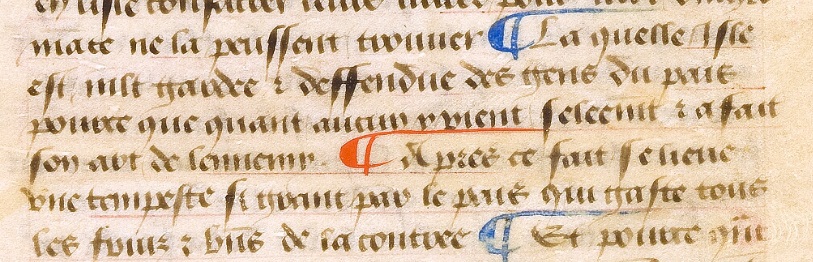 en liste consacrer leurs
mace ne la peussent trouuer ¶ La quelle Isle
est mlt gardee ⁊ deffendue des gens du pais
pource que quant aucun y vient secleciut ⁊ a fait
son art de lennemy. ¶ Apres ce fait se lieue
vne tempeste si grant par le pais qui gaste tous
les fruiz ⁊ bn̄s de la contree ¶ Et pource qn̄t